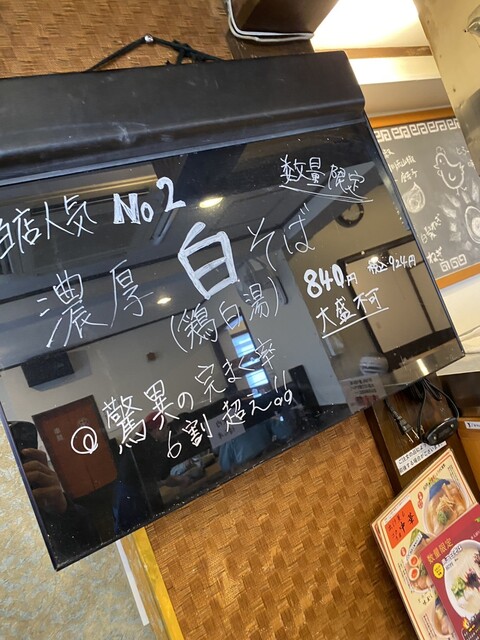 当店人気 No2
数量限定
濃厚 白そば
(鶏白湯)
840円 税込924円
大盛不可
◎驚異の完まく率
6割超え!!
数量限定